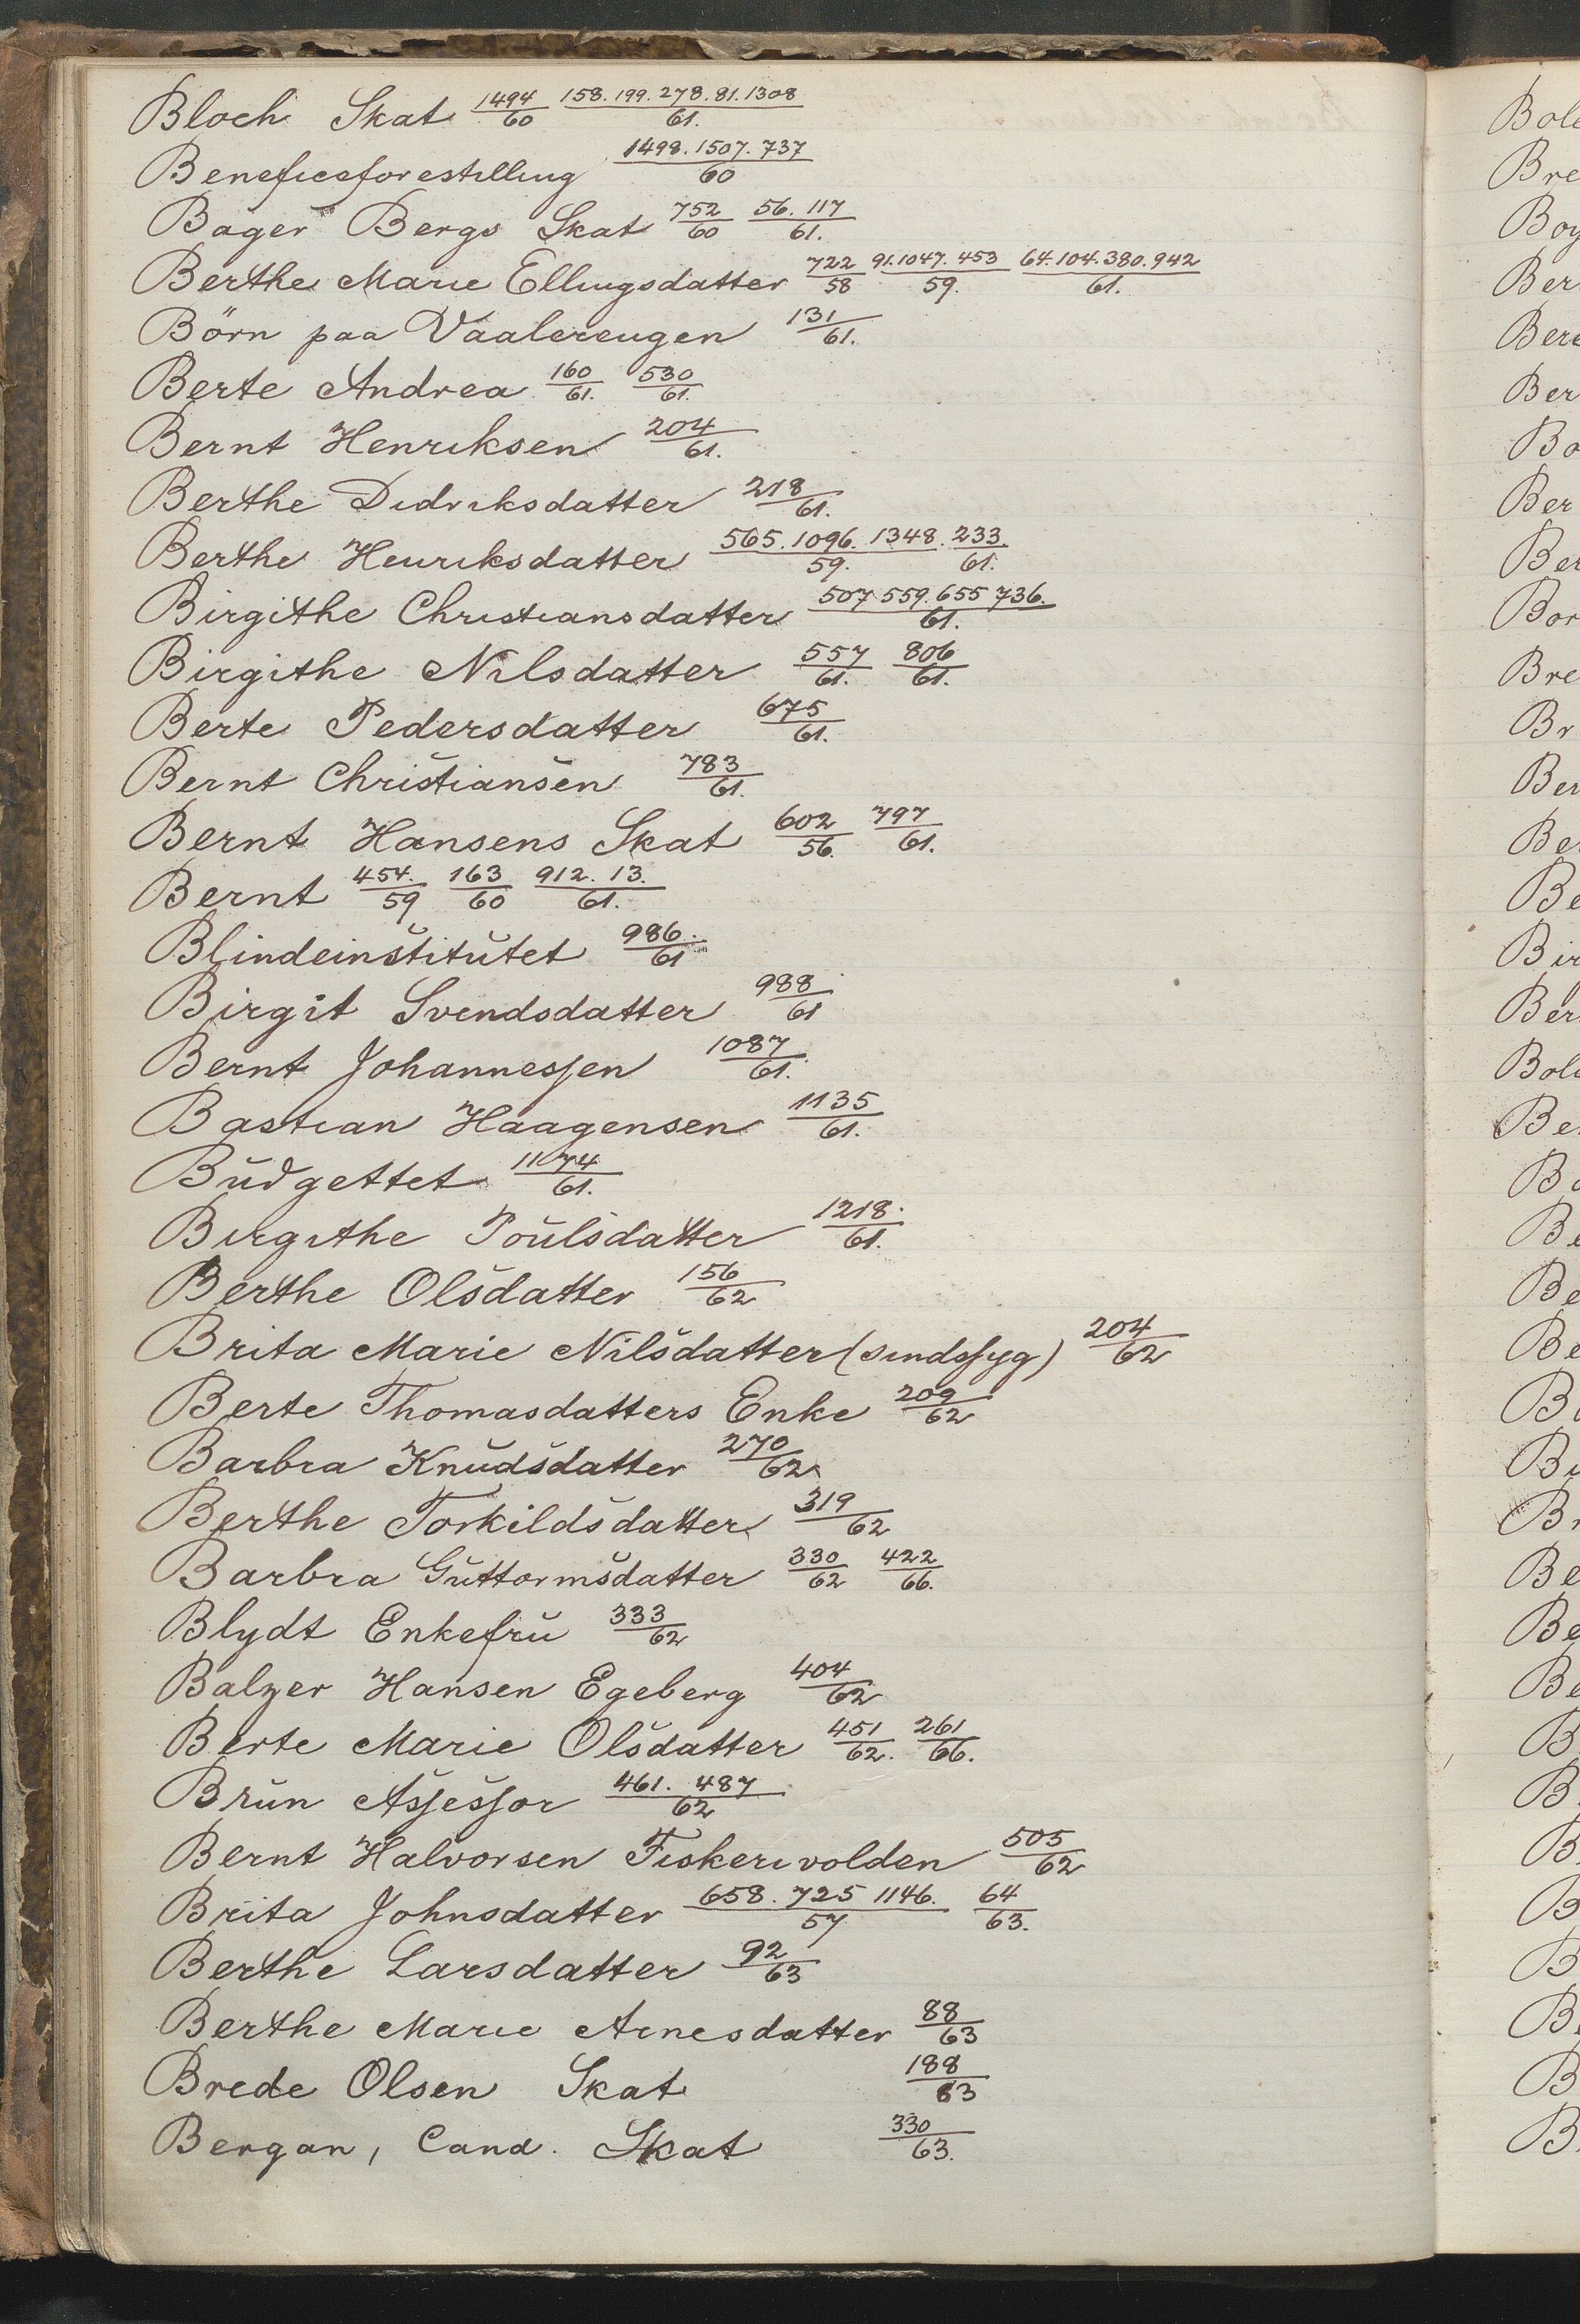 Bloch Skat 1494/60 158.199.278.81.1308/61.
Beneficeforestilling 1498.1507.737/60
Bager Bergs Skat 752/60 56.117/61.
Berthe Marie Ellingsdatter 722/58 91.1047.453/59. 64.104.380.942/61.
Börn paa Vaalerengen 131/61.
Berte Andrea 160/61. 530/61.
Bernt Henriksen 204/61.
Berthe Didriksdatter 218/61.
Berthe Henriksdatter 565.1096.1348/59. 233/61.
Birgithe Christiansdatter 507 559.655 736./61.
Birgithe Nilsdatter 557/61. 806/61.
Berte Pedersdatter 675/61.
Bernt Christiansen 783/61.
Bernt Hansens Skat 602/56. 797/61.
Bernt 454./59 163/60 912.13./61.
Blindeinstitutet 986./61
Birgit Svendsdatter 988/61
Bernt Johannessen 1087/61.
Bastian Haagensen 1135/61.
Budgettet 1174/61.
Birgithe Poulsdatter 1218./61.
Berthe Olsdatter 156/62
Brita Marie Nilsdatter (sindssyg) 204/62
Berte Thomasdatters Enke 209/62
Barbra Knudsdatter 270/62
Berthe Torkildsdatter 319/62
Barbra Guttormsdatter 330/62 422/66.
Blydt Enkefru 333/62
Balzer Hansen Egeberg 404/62
Berte Marie Olsdatter 451/62. 261/66.
Brun Assessor 461.487/62
Bernt Halvorsen Fiskerivolden 505/62
Brita Johnsdatter 658.725 1146./57 64/63.
Berthe Larsdatter 92/63
Berthe Marie Arnesdatter 88/63
Brede Olsen Skat 188/63
Bergan, Cand. Skat 330/63.